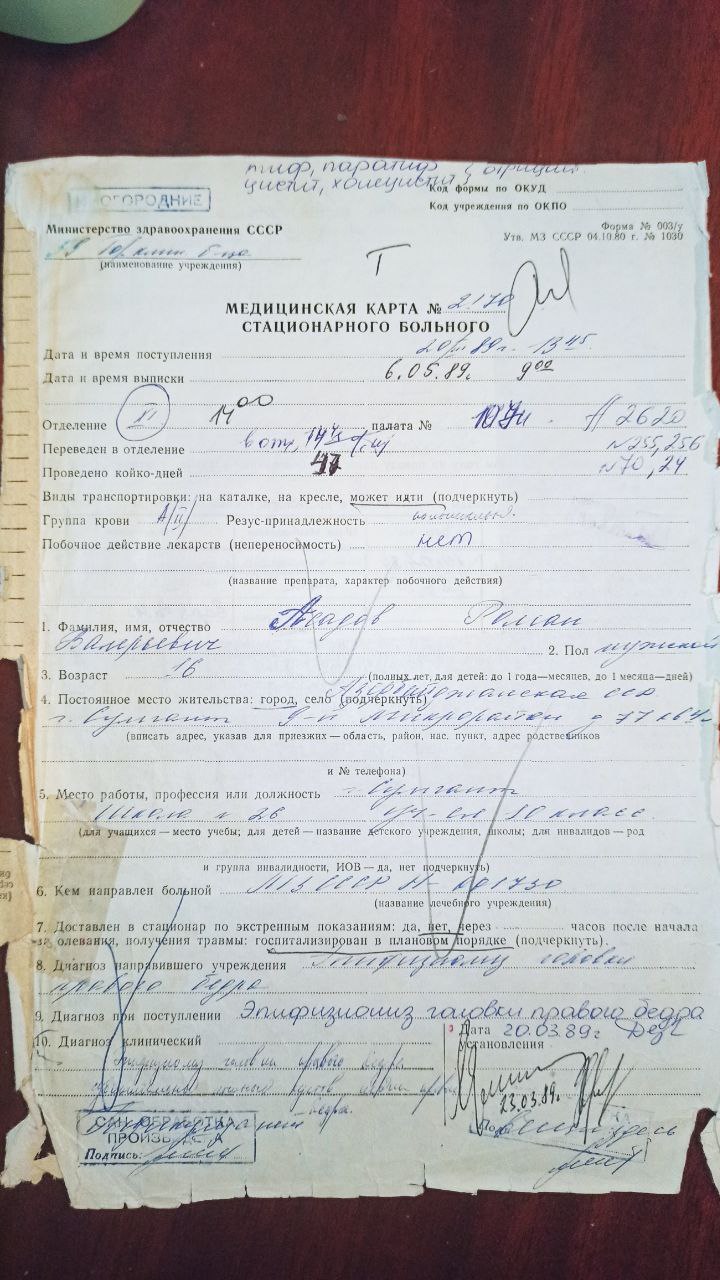 тиф, паратиф
цистит, холецистит
Код формы по ОКУД
ИНОГОРОДНИЕ
Код учреждения по ОКПО
Министерство здравоохранения СССР
Форма № 003/у
59 гор клин б-ца
Утв. МЗ СССР 04.10.80 г. № 1030
(наименование учреждения)
Т
МЕДИЦИНСКАЯ КАРТА № 2170
СТАЦИОНАРНОГО БОЛЬНОГО
Дата и время поступления 20/III 89г. 13 45
Дата и время выписки 6.05.89г. 9 00
Отделение VI 14 00 палата № 2620
Переведен в отделение №255,256
Проведено койко-дней 47 №70,24
Виды транспортировки: на каталке, на кресле, может идти (подчеркнуть)
Группа крови А/II/ Резус-принадлежность
Побочное действие лекарств (непереносимость) нет
(название препарата, характер побочного действия)
1. Фамилия, имя, отчество Роман
Валерьевич 2. Пол мужской
3. Возраст 16 (полных лет, для детей: до 1 года—месяцев, до 1 месяца—дней)
4. Постоянное место жительства: город, село (подчеркнуть) Азербайджанская ССР
г. Сумгаит 9-й микрорайон д 77 кв 4
(вписать адрес, указав для приезжих — область, район, нас. пункт, адрес родственников
и № телефона)
5. Место работы, профессия или должность г. Сумгаит
Школа № 26 уч-ся 10 класс.
(для учащихся — место учебы; для детей — название детского учреждения, школы; для инвалидов — род
и группа инвалидности, ИОВ — да, нет подчеркнуть)
6. Кем направлен больной МЗ СССР
(название лечебного учреждения)
7. Доставлен в стационар по экстренным показаниям: да, нет, через часов после начала
заболевания, получения травмы: госпитализирован в плановом порядке (подчеркнуть).
8. Диагноз направившего учреждения Эпифизиолиз головки
правого бедра
9. Диагноз при поступлении Эпифизиолиз головки правого бедра
10. Диагноз клинический
Дата 20.03.89г
установления
Эпифизиолиз головки правого бедра
23.03.89г.
бедра.
САН. ОБРАБОТКА
ПРОИЗВЕДЕНА
Подпись: